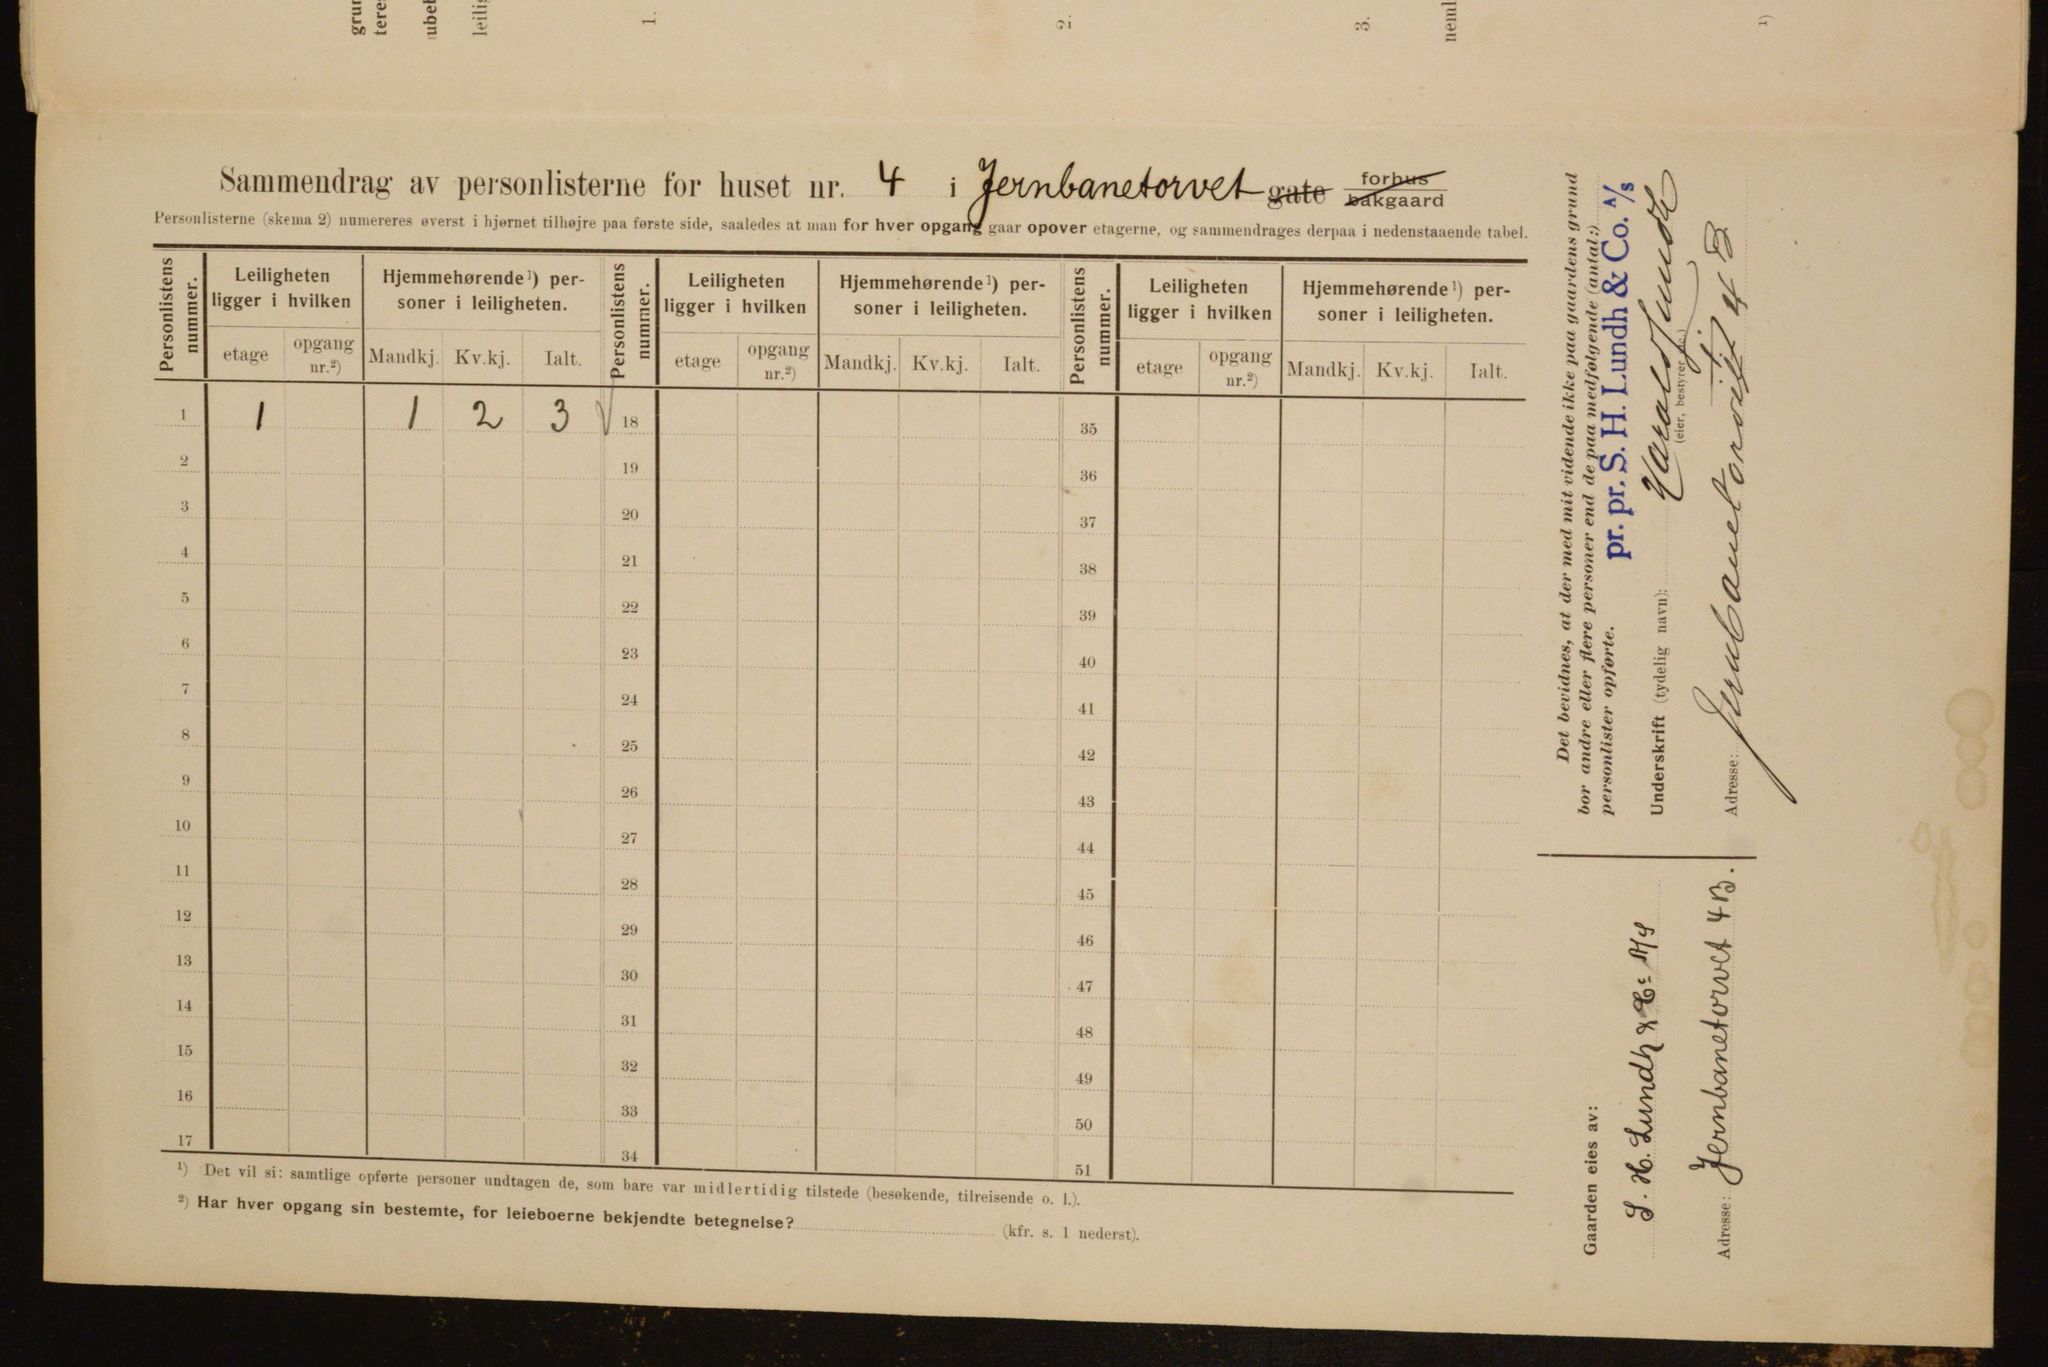 grun
teres
ubeb
leilig
1.
2.
3.
neml
1)
Sammendrag av personlisterne for huset nr. 4 i Jernbanetorvet gate forhus bakgaard
Personlisterne (skema 2) numereres øverst i hjørnet tilhøjre paa første side, saaledes at man for hver opgang gaar opover etagerne, og sammendrages derpaa i nedenstaaende tabel.
Personlistens nummer. Leiligheten ligger i hvilken Hjemmehørende¹) personer i leiligheten. Personlistens nummer. Leiligheten ligger i hvilken Hjemmehørende¹) personer i leiligheten. Personlistens nummer. Leiligheten ligger i hvilken Hjemmehørende¹) personer i leiligheten.
etage opgang nr.²) Mandkj. Kv.kj. Ialt. etage opgang nr.²) Mandkj. Kv.kj. Ialt. etage opgang nr.²) Mandkj. Kv.kj. Ialt.
1 1 1 2 3 18 35
2 19 36
3 20 37
4 21 38
5 22 39
6 23 40
7 24 41
8 25 42
9 26 43
10 27 44
11 28 45
12 29 46
13 30 47
14 31 48
15 32 49
16 33 50
17 34 51
1) Det vil si: samtlige opførte personer undtagen de, som bare var midlertidig tilstede (besøkende, tilreisende o. l.).
2) Har hver opgang sin bestemte, for leieboerne bekjendte betegnelse? (kfr. s. 1 nederst).
Det bevidnes, at der med mit vidende ikke paa gaardens grund
bor andre eller flere personer end de paa medfølgende (antal:)
personlister opførte.
pr. pr. S. H. Lundh & Co. A/s
Underskrift (tydelig navn): Harald Lundh
(eier, bestyrer etc.)
Adresse: Jernbanetorvet 4 B
Gaarden eies av:
S. H. Lundh & Co A/S
Adresse: Jernbanetorvet 4 B.